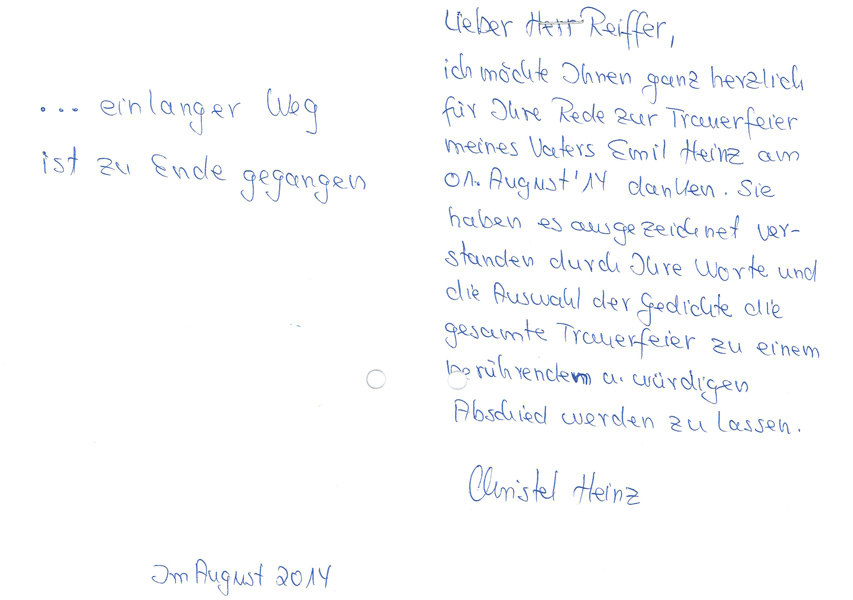 ... ein langer Weg
ist zu Ende gegangen
Im August 2014
Lieber Herr Reiffer,
ich möchte Ihnen ganz herzlich
für Ihre Rede zur Trauerfeier
meines Vaters Emil Heinz am
01. August '14 danken. Sie
haben es ausgezeichnet ver-
standen durch Ihre Worte und
die Auswahl der Gedichte die
gesamte Trauerfeier zu einem
berührendem u. würdigen
Abschied werden zu lassen.
Christel Heinz